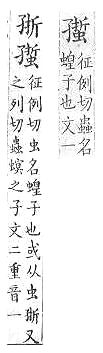 征例切虫名
蝗子也文一
征例切虫名蝗子也或从虫又
之列切蟆之子文二重音一